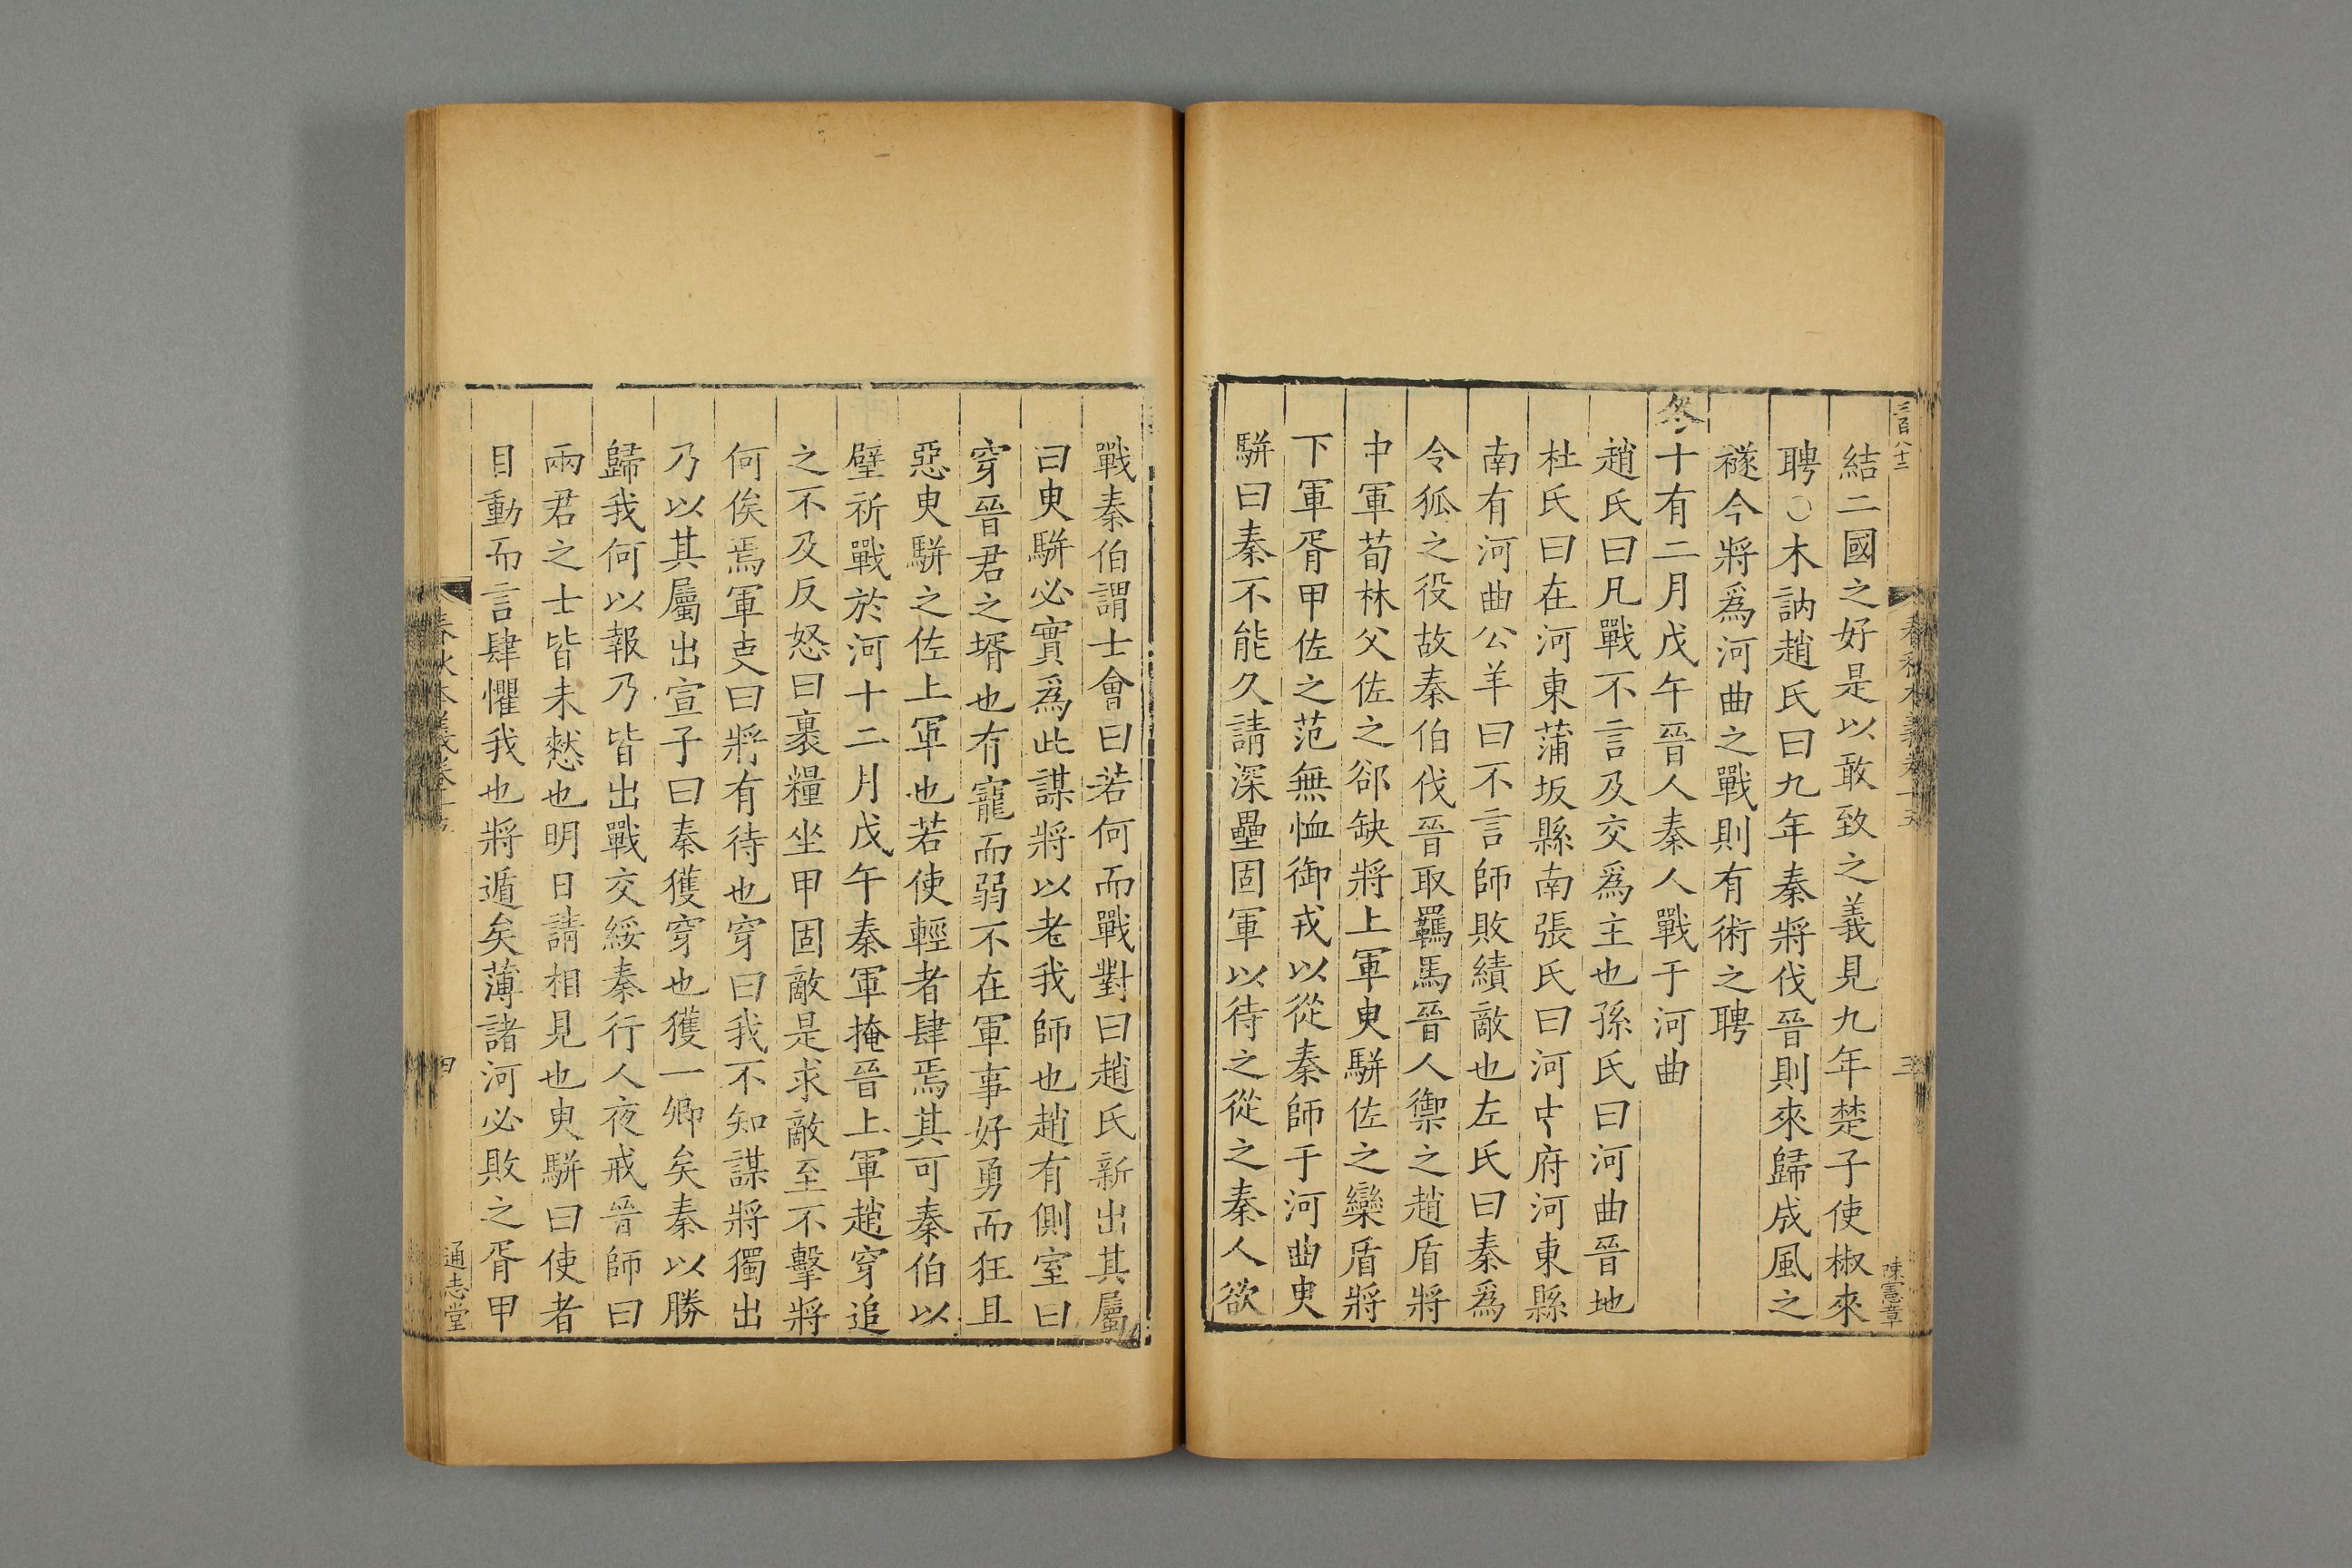 三百八十二
結二國之好是以敢致之義見九年楚子使椒來
聘○木訥趙氏曰九年秦將伐晉則來歸成風之
襚今將爲河曲之戰則有術之聘
冬十有二月戊午晉人秦人戰于河曲
趙氏曰凡戰不言及交爲主也孫氏曰河曲晉地
杜氏曰在河東蒲坂縣南張氏曰河中府河東縣
南有河曲公羊曰不言師敗績敵也左氏曰秦爲
令狐之役故秦伯伐晉取羈馬晉人禦之趙盾將
中軍荀林父佐之郤缺將上軍臾駢佐之欒盾將
下軍胥甲佐之范無恤御戎以從秦師于河曲臾
駢曰秦不能久請深壘固軍以待之從之秦人欲
春秋本義卷十五
三
陳憲章
戰秦伯謂士會曰若何而戰對曰趙氏新出其屬
曰臾駢必實爲此謀將以老我師也趙有側室曰
穿晉君之壻也有寵而弱不在軍事好勇而狂且
惡臾駢之佐上軍也若使輕者肆焉其可秦伯以
璧祈戰於河十二月戊午秦軍掩晉上軍趙穿追
之不及反怒曰裹糧坐甲固敵是求敵至不擊將
何俟焉軍吏曰將有待也穿曰我不知謀將獨出
乃以其屬出宣子曰秦獲穿也獲一卿矣秦以勝
歸我何以報乃皆出戰交綏秦行人夜戒晉師曰
兩君之士皆未憖也明日請相見也臾駢曰使者
目動而言肆懼我也將遁矣薄諸河必敗之胥甲
春秋本義卷十五
四
通志堂